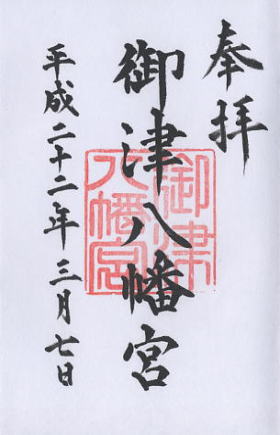 奉拝
御津八幡宮
平成二十二年三月七日
御津
八幡宮